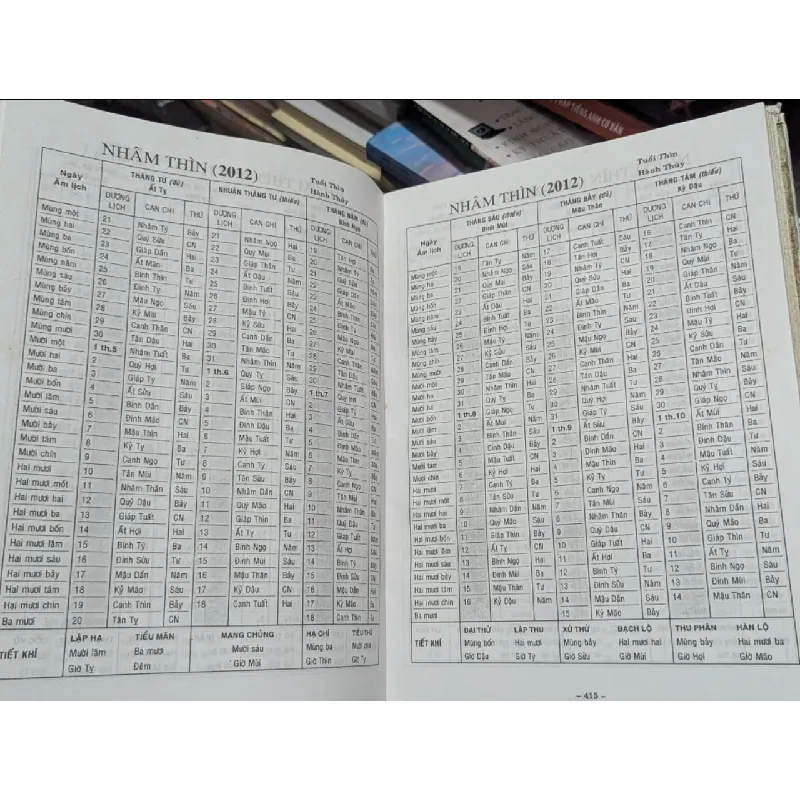 NHÂM THÌN (2012)
Tuổi Thìn
Hành Thủy
Ngày Âm lịch THÁNG TƯ (đủ) Ất Tỵ NHUẬN THÁNG TƯ (thiếu) THÁNG NĂM (đủ) Bính Ngọ
DƯƠNG LỊCH CAN CHI THỨ DƯƠNG LỊCH CAN CHI THỨ DƯƠNG LỊCH CAN CHI
Mùng một 21 Nhâm Tý Bảy 21 Nhâm Ngọ Hai 19 Tân Hợi
Mùng hai 22 Quý Sửu CN 22 Quý Mùi Ba 20 Nhâm Tý
Mùng ba 23 Giáp Dần Hai 23 Giáp Thân Tư 21 Quý Sửu
Mùng bốn 24 Ất Mão Ba 24 Ất Dậu Năm 22 Giáp Dần
Mùng năm 25 Bính Thìn Tư 25 Bính Tuất Sáu 23 Ất Mão
Mùng sáu 26 Đinh Tỵ Năm 26 Đinh Hợi Bảy 24 Bính Thìn
Mùng bảy 27 Mậu Ngọ Sáu 27 Mậu Tý CN 25 Đinh Tỵ
Mùng tám 28 Kỷ Mùi Bảy 28 Kỷ Sửu Hai 26 Mậu Ngọ
Mùng chín 29 Canh Thân CN 29 Canh Dần Ba 27 Kỷ Mùi
Mùng mười 30 Tân Dậu Hai 30 Tân Mão Tư 28 Canh Thân
Mười một 1 th.5 Nhâm Tuất Ba 31 Nhâm Thìn Năm 29 Tân Dậu
Mười hai 2 Quý Hợi Tư 1 th.6 Quý Tỵ Sáu 30 Nhâm Tuất
Mười ba 3 Giáp Tý Năm 2 Giáp Ngọ Bảy 1 th.7 Quý Hợi
Mười bốn 4 Ất Sửu Sáu 3 Ất Mùi CN 2 Giáp Tý
Mười lăm 5 Bính Dần Bảy 4 Bính Thân Hai 3 Ất Sửu
Mười sáu 6 Đinh Mão CN 5 Đinh Dậu Ba 4 Bính Dần
Mười bảy 7 Mậu Thìn Hai 6 Mậu Tuất Tư 5 Đinh Mão
Mười tám 8 Kỷ Tỵ Ba 7 Kỷ Hợi Năm 6 Mậu Thìn
Mười chín 9 Canh Ngọ Tư 8 Canh Tý Sáu 7 Kỷ Tỵ
Hai mươi 10 Tân Mùi Năm 9 Tân Sửu Bảy 8 Canh Ngọ
Hai mươi mốt 11 Nhâm Thân Sáu 10 Nhâm Dần CN 9 Tân Mùi
Hai mươi hai 12 Quý Dậu Bảy 11 Quý Mão Hai 10 Nhâm Thân
Hai mươi ba 13 Giáp Tuất CN 12 Giáp Thìn Ba 11 Quý Dậu
Hai mươi bốn 14 Ất Hợi Hai 13 Ất Tỵ Tư 12 Giáp Tuất
Hai mươi lăm 15 Bính Tý Ba 14 Bính Ngọ Năm 13 Ất Hợi
Hai mươi sáu 16 Đinh Sửu Tư 15 Đinh Mùi Sáu 14 Bính Tý
Hai mươi bảy 17 Mậu Dần Năm 16 Mậu Thân Bảy 15 Đinh Sửu
Hai mươi tám 18 Kỷ Mão Sáu 17 Kỷ Dậu CN 16 Mậu Dần
Hai mươi chín 19 Canh Thìn Bảy 18 Canh Tuất Hai 17 Kỷ Mão
Ba mươi 20 Tân Tỵ CN 18 Canh Thìn
TIẾT KHÍ LẬP HẠ TIỂU MÃN MANG CHỦNG HẠ CHÍ TIỂU THỬ
Mười lăm Ba mươi Mười sáu Mùng ba
Giờ Tỵ Đêm Giờ Mùi Giờ Thìn Giờ Tỵ
NHÂM THÌN (2012)
Tuổi Thìn
Hành Thủy
Ngày Âm lịch THÁNG SÁU (thiếu) Đinh Mùi THÁNG BẢY (đủ) Mậu Thân THÁNG TÁM (thiếu) Kỷ Dậu
DƯƠNG LỊCH CAN CHI THỨ DƯƠNG LỊCH CAN CHI THỨ DƯƠNG LỊCH CAN CHI THỨ
Mùng một 19 Tân Tỵ Năm 17 Canh Tuất Sáu 16 Canh Thìn CN
Mùng hai 20 Nhâm Ngọ Sáu 18 Tân Hợi Bảy 17 Tân Tỵ Hai
Mùng ba 21 Quý Mùi Bảy 19 Nhâm Tý CN 18 Nhâm Ngọ Ba
Mùng bốn 22 Giáp Thân CN 20 Quý Sửu Hai 19 Quý Mùi Tư
Mùng năm 23 Ất Dậu Hai 21 Giáp Dần Ba 20 Giáp Thân Năm
Mùng sáu 24 Bính Tuất Ba 22 Ất Mão Tư 21 Ất Dậu Sáu
Mùng bảy 25 Đinh Hợi Tư 23 Bính Thìn Năm 22 Bính Tuất Bảy
Mùng tám 26 Mậu Tý Năm 24 Đinh Tỵ Sáu 23 Đinh Hợi CN
Mùng chín 27 Kỷ Sửu Sáu 25 Mậu Ngọ Bảy 24 Mậu Tý Hai
Mùng mười 28 Canh Dần Bảy 26 Kỷ Mùi CN 25 Kỷ Sửu Ba
Mười một 29 Tân Mão CN 27 Canh Thân Hai 26 Canh Dần Tư
Mười hai 30 Nhâm Thìn Hai 28 Tân Dậu Ba 27 Tân Mão Năm
Mười ba 31 Quý Tỵ Ba 29 Nhâm Tuất Tư 28 Nhâm Thìn Sáu
Mười bốn 1 th.8 Giáp Ngọ Tư 30 Quý Hợi Năm 29 Quý Tỵ Bảy
Mười lăm 2 Ất Mùi Năm 31 Giáp Tý Sáu 30 Giáp Ngọ CN
Mười sáu 3 Bính Thân Sáu 1 th.9 Ất Sửu Bảy 1 th.10 Ất Mùi Hai
Mười bảy 4 Đinh Dậu Bảy 2 Bính Dần CN 2 Bính Thân Ba
Mười tám 5 Mậu Tuất CN 3 Đinh Mão Hai 3 Đinh Dậu Tư
Mười chín 6 Kỷ Hợi Hai 4 Mậu Thìn Ba 4 Mậu Tuất Năm
Hai mươi 7 Canh Tý Ba 5 Kỷ Tỵ Tư 5 Kỷ Hợi Sáu
Hai mươi mốt 8 Tân Sửu Tư 6 Canh Ngọ Năm 6 Canh Tý Bảy
Hai mươi hai 9 Nhâm Dần Năm 7 Tân Mùi Sáu 7 Tân Sửu CN
Hai mươi ba 10 Quý Mão Sáu 8 Nhâm Thân Bảy 8 Nhâm Dần Hai
Hai mươi bốn 11 Giáp Thìn Bảy 9 Quý Dậu CN 9 Quý Mão Ba
Hai mươi lăm 12 Ất Tỵ CN 10 Giáp Tuất Hai 10 Giáp Thìn Tư
Hai mươi sáu 13 Bính Ngọ Hai 11 Ất Hợi Ba 11 Ất Tỵ Năm
Hai mươi bảy 14 Đinh Mùi Ba 12 Bính Tý Tư 12 Bính Ngọ Sáu
Hai mươi tám 15 Mậu Thân Tư 13 Đinh Sửu Năm 13 Đinh Mùi Bảy
Hai mươi chín 16 Kỷ Dậu Năm 14 Mậu Dần Sáu 14 Mậu Thân CN
Ba mươi 15 Kỷ Mão Bảy
TIẾT KHÍ ĐẠI THỬ LẬP THU XỬ THỬ BẠCH LỘ THU PHÂN HÀN LỘ
Mùng bốn Hai mươi Mùng bảy Hai mươi hai Mùng bảy Hai mươi ba
Giờ Dậu Giờ Tỵ Giờ Sửu Giờ Mùi Giờ Hợi Giờ Mão
– 415 –